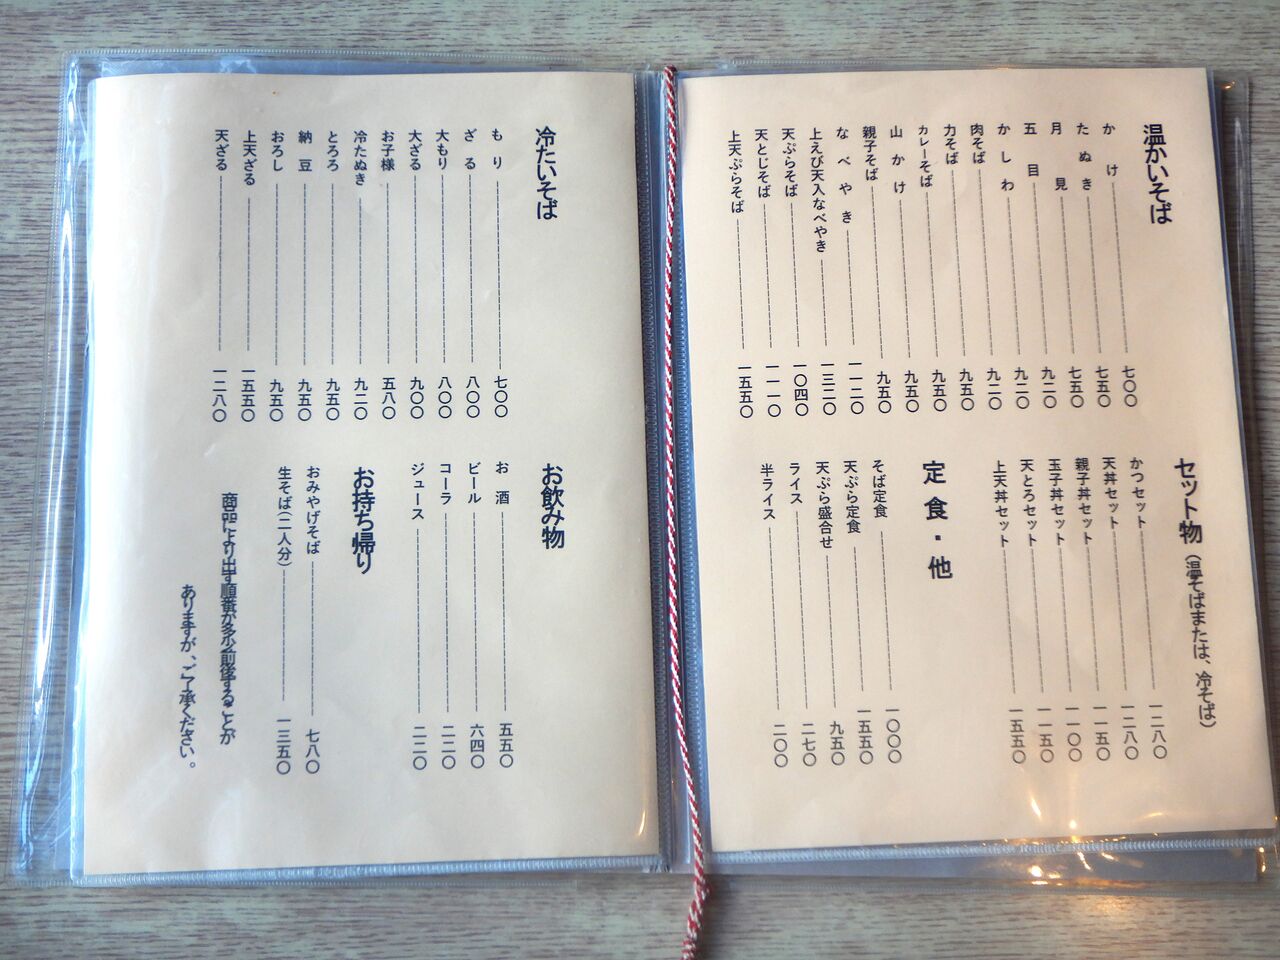 温かいそば
かけ 七〇〇
たぬき 七五〇
月見 七五〇
五目 九二〇
かしわ 九二〇
肉そば 九二〇
力そば 九五〇
カレーそば 九五〇
山かけ 九五〇
親子そば 九五〇
なべやき 一一二〇
上えび天入なべやき 一三二〇
天ぷらそば 一〇四〇
天とじそば 一一一〇
上天ぷらそば 一五五〇
セット物(温そばまたは、冷そば)
かつセット 一二八〇
天丼セット 一二八〇
親子丼セット 一一五〇
玉子丼セット 一一〇〇
天とろセット 一一五〇
上天丼セット 一五五〇
定食・他
そば定食 一〇〇〇
天ぷら定食 一五五〇
天ぷら盛合せ 九五〇
ライス 二七〇
半ライス 二〇〇
冷たいそば
もり 七〇〇
ざる 八〇〇
大もり 八〇〇
大ざる 九〇〇
お子様 五八〇
冷たぬき 九二〇
とろろ 九五〇
納豆 九五〇
おろし 九五〇
上天ざる 一五五〇
天ざる 一二八〇
お飲み物
お酒 五五〇
ビール 六四〇
コーラ 二二〇
ジュース 二二〇
お持ち帰り
おみやげそば 七八〇
生そば(二人分) 一三五〇
商品により出す順番が多少前後することが
ありますが、ご了承ください。